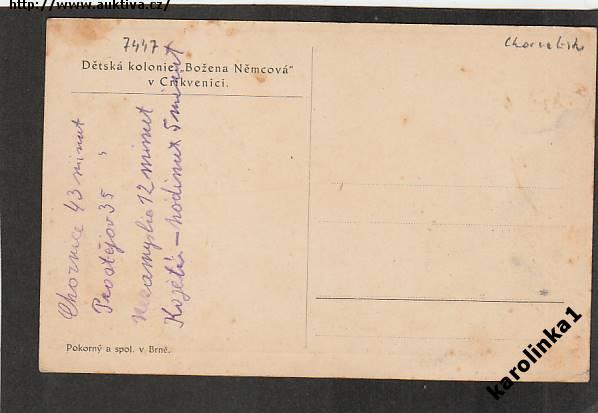 http://www.auktiva.cz/
7447
Chorvatsko
Dětská kolonie „Božena Němcová"
v Crikvenici.
Chornice 43 minut
Prostějov 35 "
Nezamyslice 12 minut
Kojetín — hodinut 5 minut
Pokorný a spol. v Brně.
karolinka1